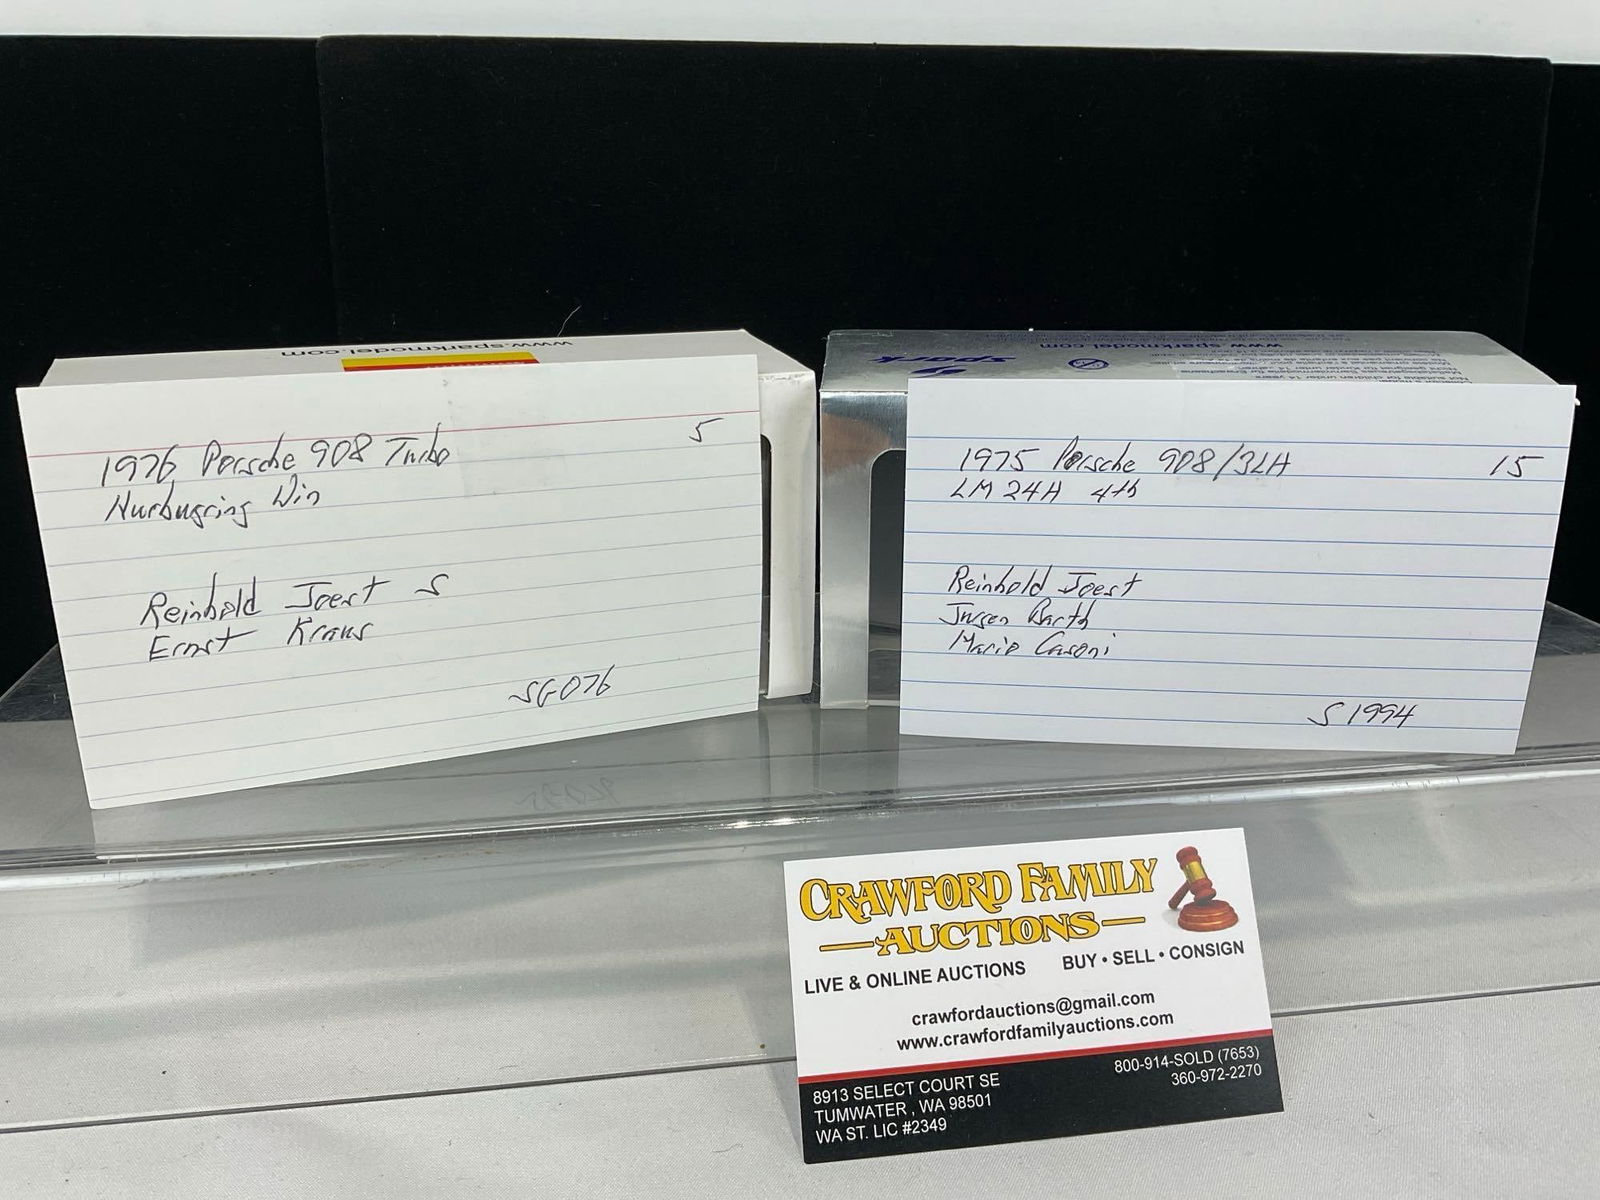 www.sparkmodel.com
1976 Porsche 908 Turbo 5
Nurburgring Win
Reinhold Joest S
Ernst Kraus
SG076
spark
www.sparkmodel.com
1975 Porsche 908/3LH 15
LM 24H 4th
Reinhold Joest
Jurgen Barth
Mario Casoni
S1994
CRAWFORD FAMILY
AUCTIONS
LIVE & ONLINE AUCTIONS BUY • SELL • CONSIGN
crawfordauctions@gmail.com
www.crawfordfamilyauctions.com
8913 SELECT COURT SE
TUMWATER , WA 98501
WA ST. LIC #2349
800-914-SOLD (7653)
360-972-2270